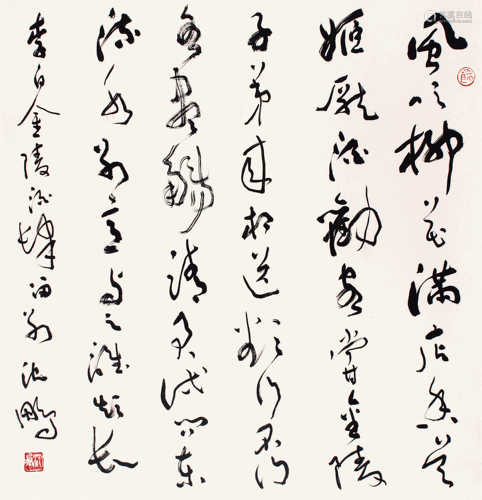 風吹柳花滿店香吳
姬壓酒勸客嘗金陵
子弟来相送欲行不行
各盡觴請君試問東
流水别意与之誰短長
李白金陵酒肆留别 沈鹏